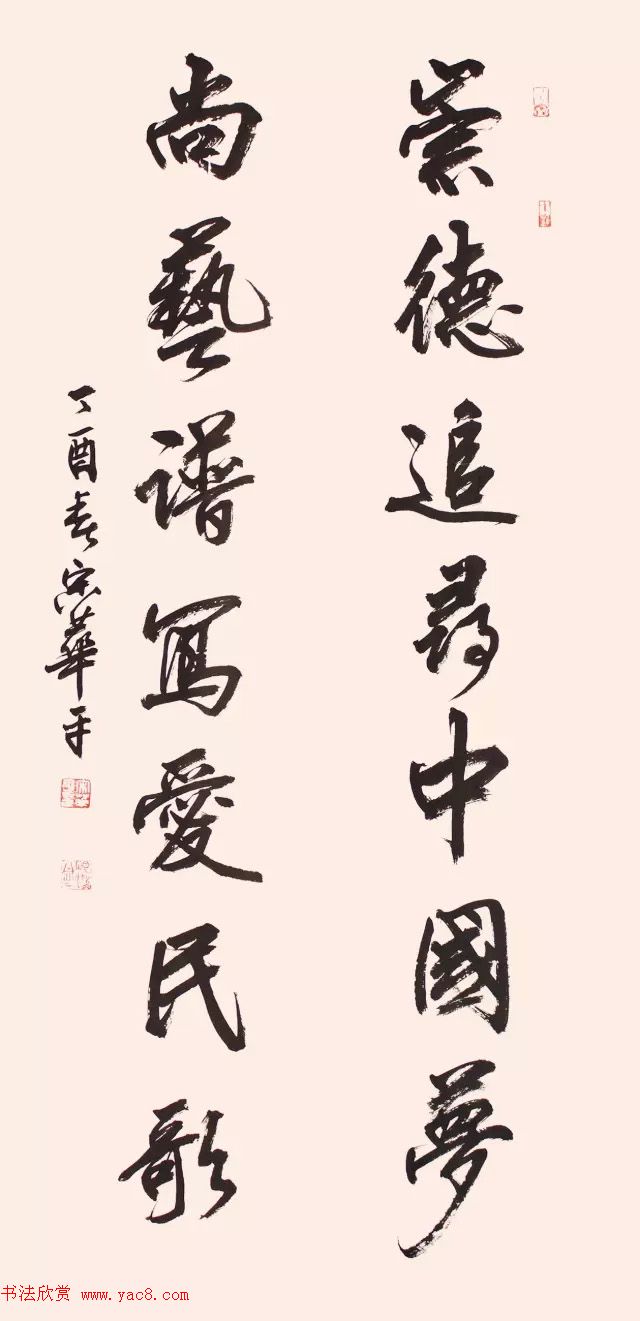 崇德追尋中國夢
尚藝譜寫愛民歌
丁酉春宗華平
书法欣赏 www.yac8.com